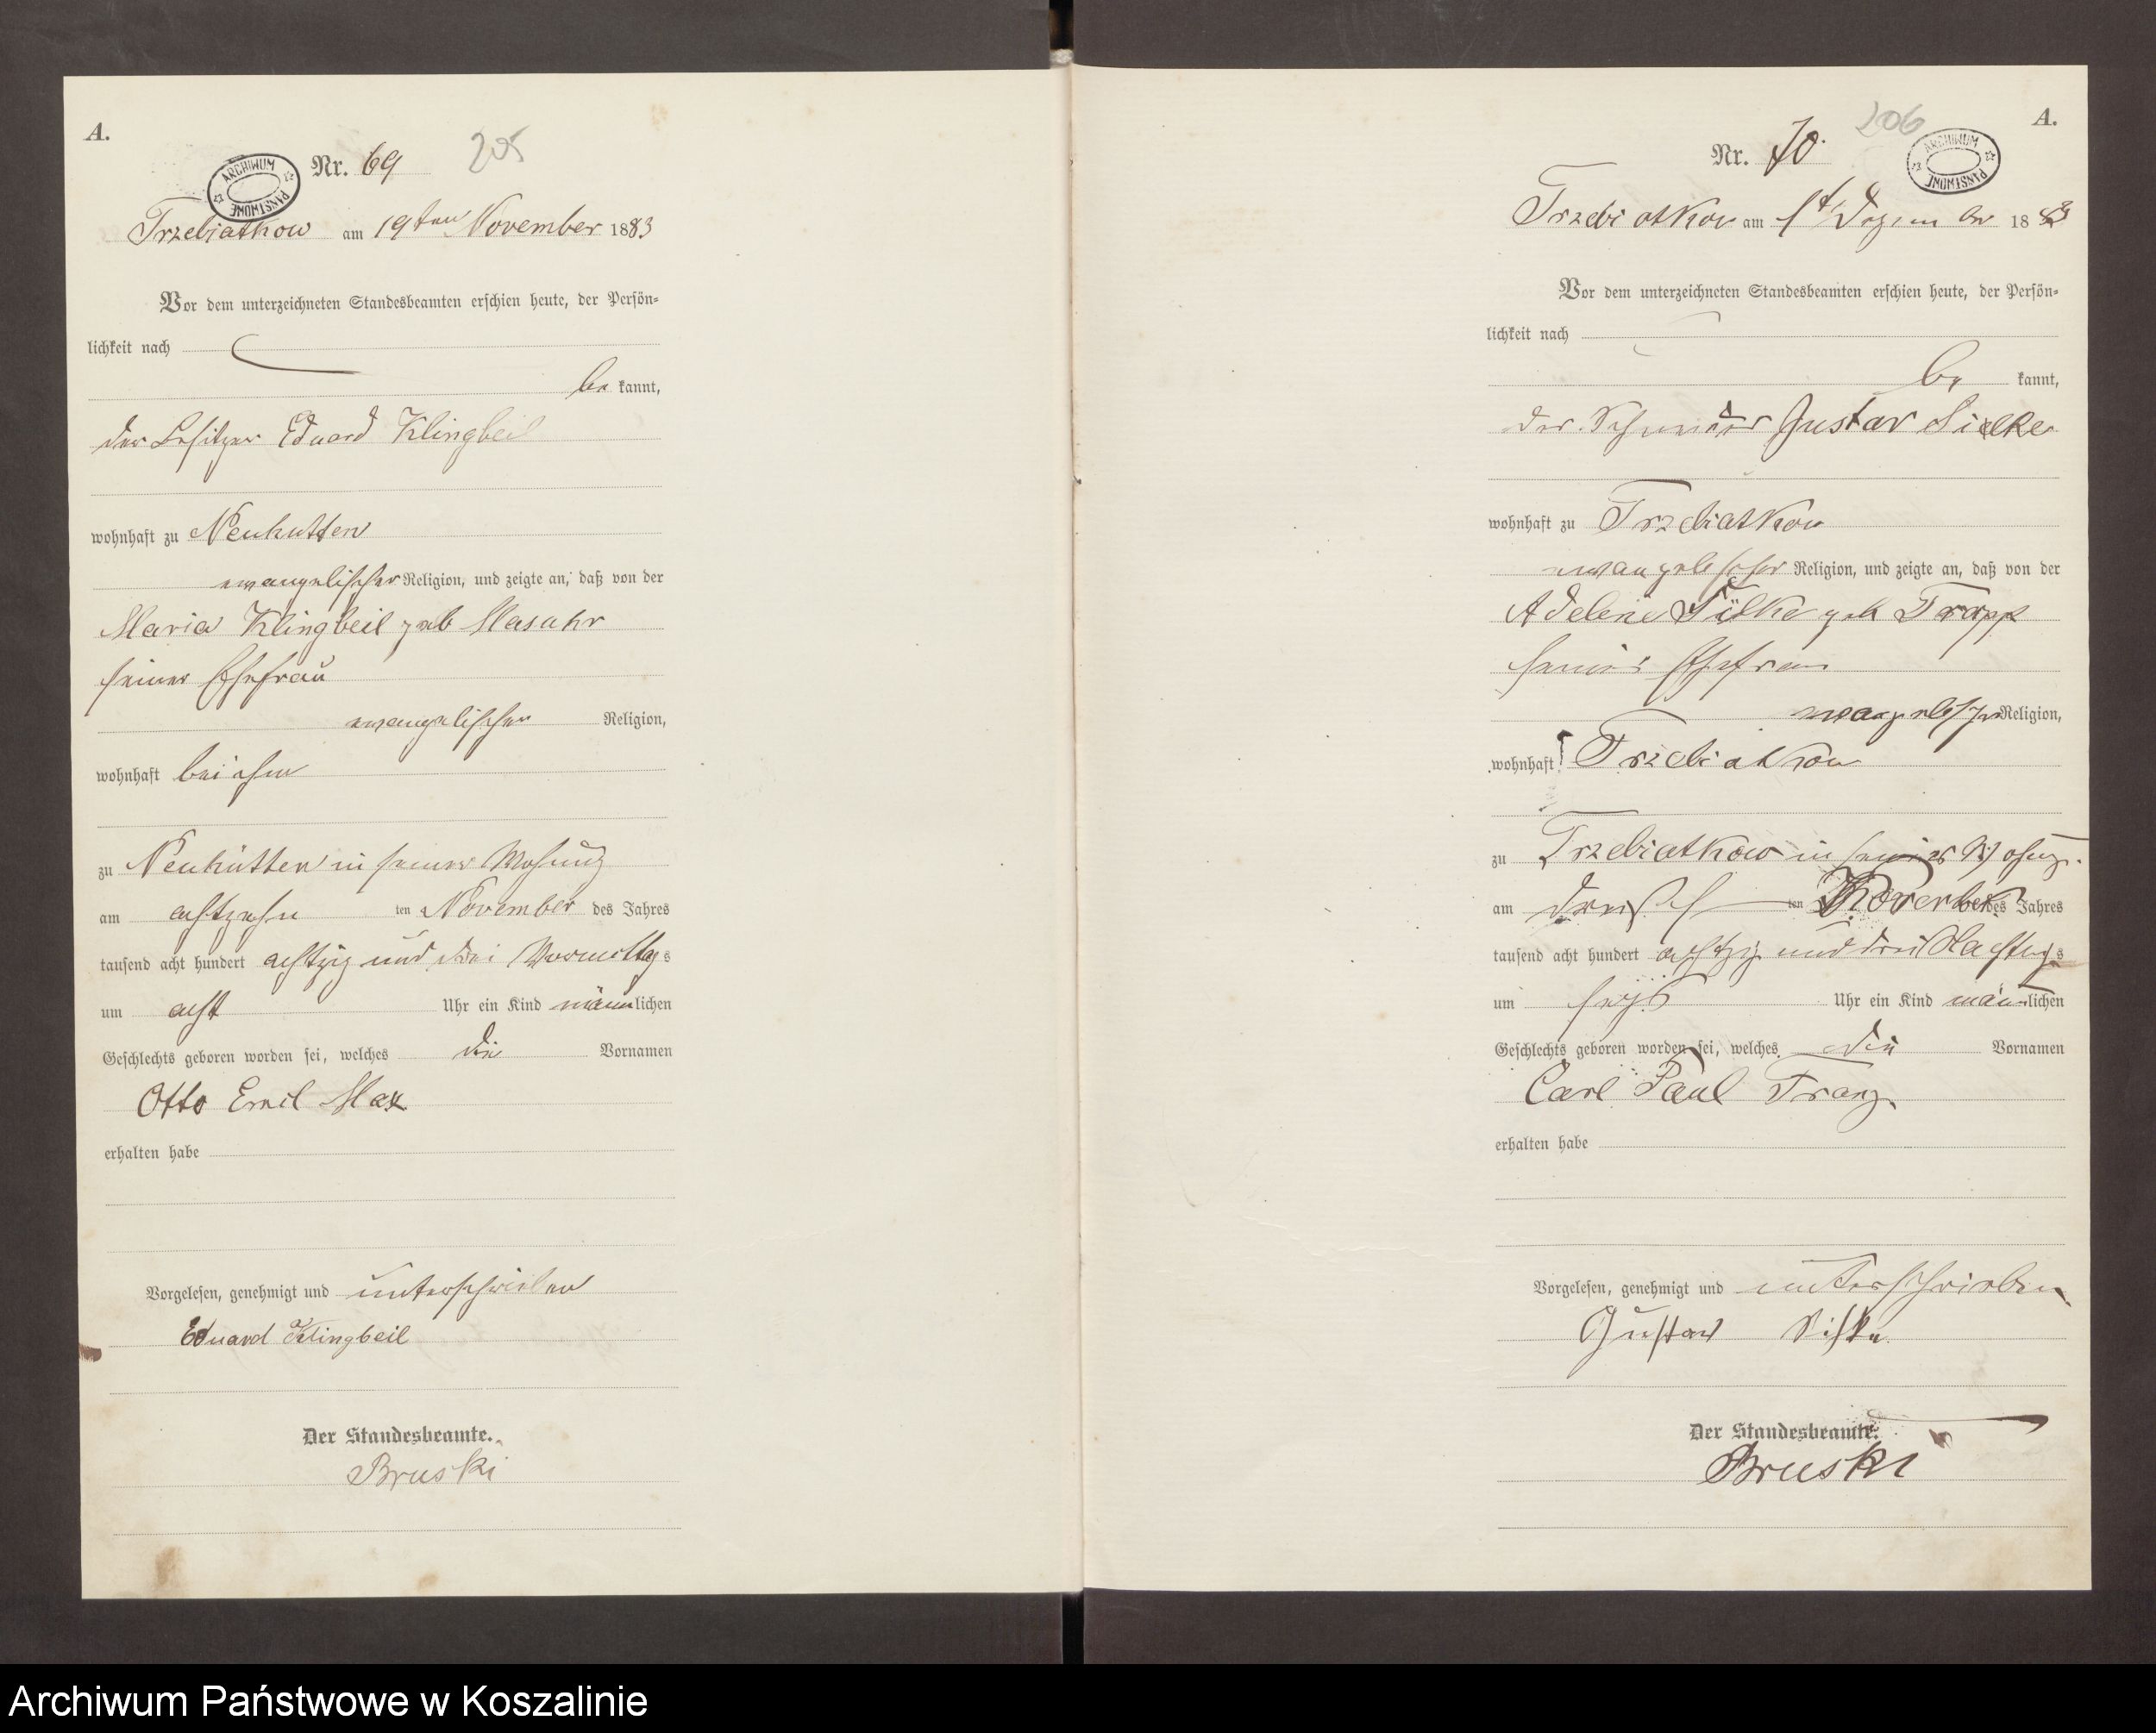 A.
Nr. 69
205
ARCHIWUM PAŃSTWOWE
Trzebiatkow am 19ten November 1883
Vor dem unterzeichneten Standesbeamten erschien heute, der Persön-
lichkeit nach
be kannt,
der Besitzer Eduard Klingbeil
wohnhaft zu Neuhutten
evangelischer Religion, und zeigte an, daß von der
Maria Klingbeil geb Masuhr
seiner Ehefrau
evangelischer Religion,
wohnhaft bei ihm
zu Neuhütten in seiner Wohnung
am achtzehn ten November des Jahres
tausend acht hundert achtzig und drei Vormittags
um acht Uhr ein Kind männlichen
Geschlechts geboren worden sei, welches die Vornamen
Otto Emil Max
erhalten habe
Vorgelesen, genehmigt und unterschrieben
Eduard Klingbeil
Der Standesbeamte.
Bruski
A.
Nr. 70.
206
ARCHIWUM PAŃSTWOWE
Trzebiatkow am 1t Dezember 1883
Vor dem unterzeichneten Standesbeamten erschien heute, der Persön-
lichkeit nach
be kannt,
der Gustav
wohnhaft zu Trzebiatkow
evangelischer Religion, und zeigte an, daß von der
Adeline geb Trapp
seiner Ehefrau
evangelischer Religion,
wohnhaft Trzebiatkow
zu Trzebiatkow in seiner Wohng.
am ten November des Jahres
tausend acht hundert achtzig und drei Nachmittags
um Uhr ein Kind männlichen
Geschlechts geboren worden sei, welches die Vornamen
Carl Paul Franz
erhalten habe
Vorgelesen, genehmigt und unterschrieben
Gustav
Der Standesbeamte.
Bruski
Archiwum Państwowe w Koszalinie